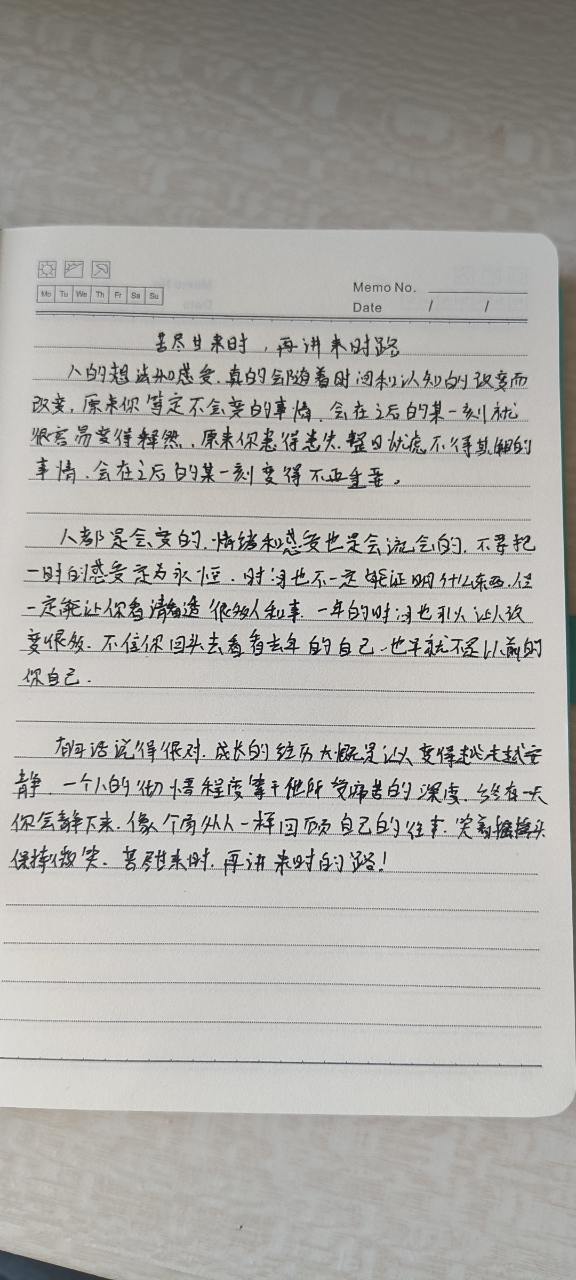 Mo Tu We Th Fr Sa Su
Memo No.
Date / /
苦尽甘来时，再讲来时路
人的想法和感受，真的会随着时间和认知的改变而
改变，原来你笃定不会变的事情，会在之后的某一刻就
很容易变得释然，原来你患得患失，整日忧虑不得其解的
事情，会在之后的某一刻变得不再重要。
人都是会变的，情绪和感受也是会流会的，不要把
一时的感受定为永恒，时间也不一定能证明什么东西，但
一定能让你看清看透很多人和事，一年的时间也可以让人改
变很多，不信你回头去看看去年的自己，也早就不是以前的
你自己.
有句话说得很对，成长的经历大概是让人变得越来越安
静，一个人的彻悟程度等于他所受痛苦的深度，终有一天
你会静下来，像个局外人一样回顾自己的往事，笑着摇摇头
保持微笑、苦尽甘来时，再讲来时的路！